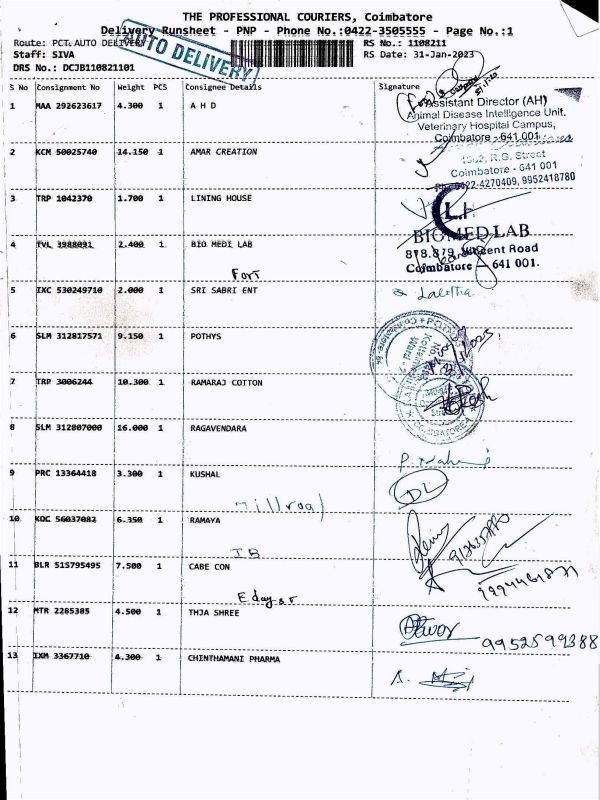 THE PROFESSIONAL COURIERS, Coimbatore
Delivery Runsheet - PNP - Phone No.:0422-3505555 - Page No.:1
Route: PCT, AUTO DELIVERY
RS No.: 1108211
Staff: SIVA
RS Date: 31-Jan-2023
DRS No.: DCJB110821101
AUTO DELIVERY
S No Consignment No Weight PCS Consignee Details Signature
1 MAA 292623617 4.300 1 A H D
Assistant Director (AH)
Animal Disease Intelligence Unit.
Veterinary Hospital Campus,
Coimbatore - 641 001
2 KCM 50025740 14.150 1 AMAR CREATION
R.G. Street
Coimbatore - 641 001
Ph: 0422-4270409, 9952418780
3 TRP 1042370 1.700 1 LINING HOUSE
L.H
4 TVL 3988091 2.400 1 BIO MEDI LAB
BIOMED LAB
878.879, Vincent Road
Coimbatore - 641 001.
Fort
5 IXC 530249710 2.000 1 SRI SABRI ENT
Lalitha
6 SLM 312817571 9.150 1 POTHYS
7 TRP 3006244 10.300 1 RAMARAJ COTTON
8 SLM 312807000 16.000 1 RAGAVENDARA
9 PRC 13364418 3.300 1 KUSHAL
DL
Millroad
10 KOC 56037082 6.350 1 RAMAYA
IB
11 BLR 515795495 7.500 1 CABE CON
12 MTR 2285385 4.500 1 THJA SHREE
9952599388
13 IXM 3367710 4.300 1 CHINTHAMANI PHARMA